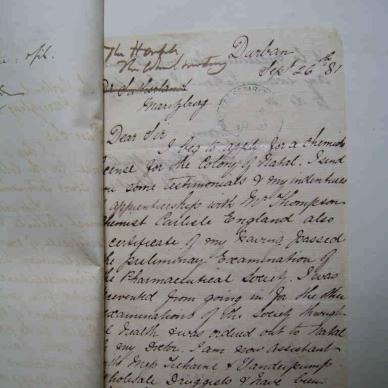 The Honble
Durban
Sept 26th 81
Maritzburg
Dear Sir
I beg to apply for a chemists
cense for the Colony of Natal. I send
ou some testimonials & my indentures
apprenticeship with Mr Thompson
hemist Carlisle England also
certificate of my having passed
he preliminary Examination of
he Pharmaceutical Society. I was
revented from going in for the other
xaminations of the Society through
l health & was ordered out to Natal
y my Doctor. I am now assistant
Mess
holesale Druggists & have been